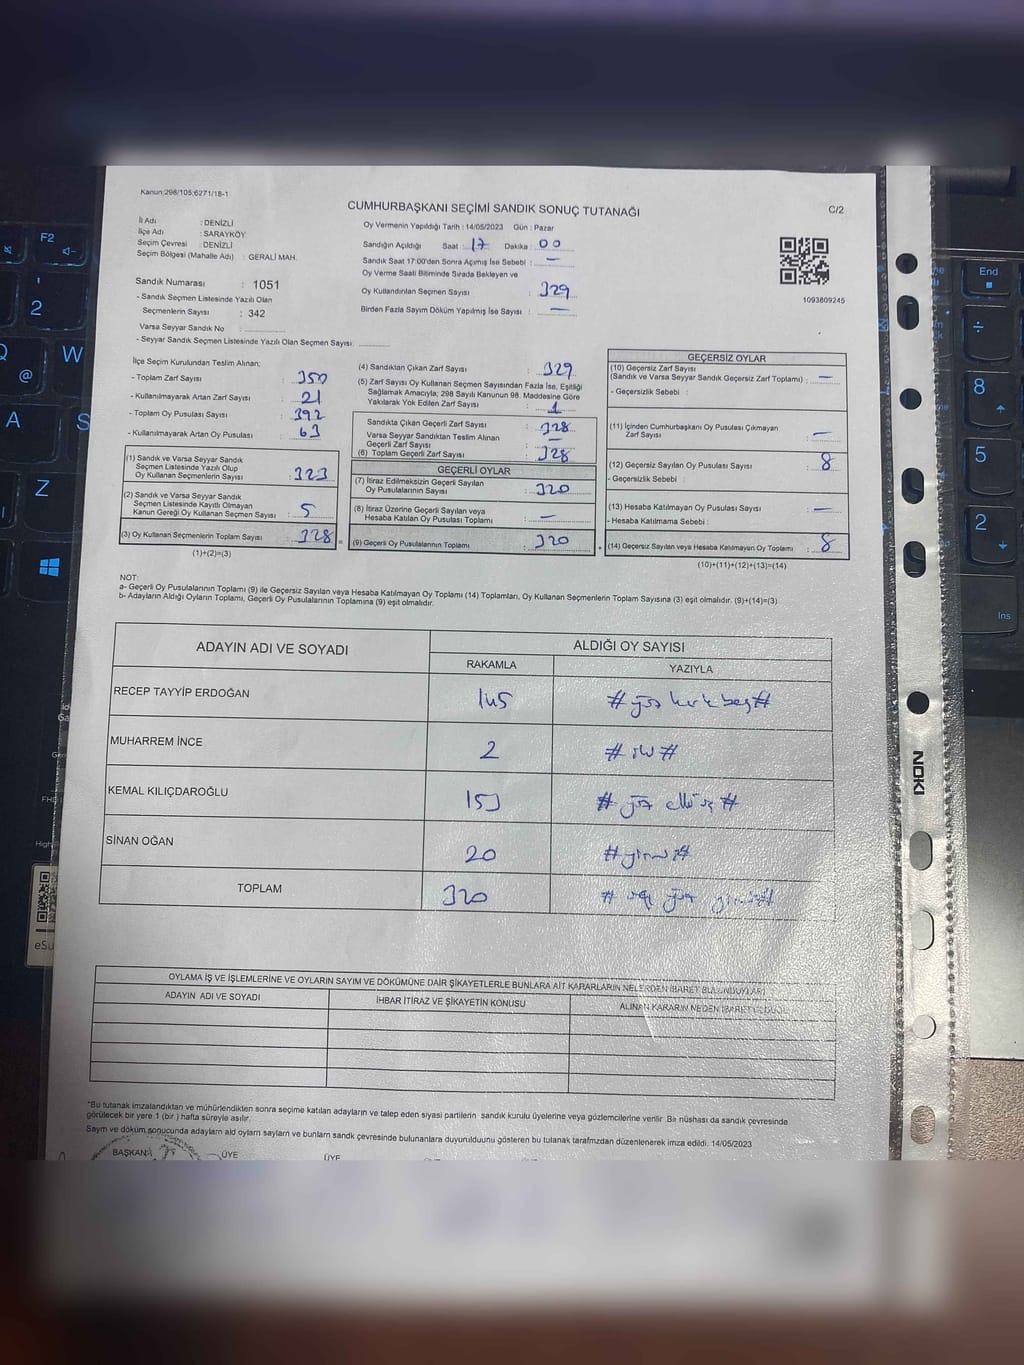 Kanun:298/105;6271/18-1
CUMHURBAŞKANI SEÇİMİ SANDIK SONUÇ TUTANAĞI
C/2
İl Adı : DENİZLİ
İlçe Adı : SARAYKÖY
Seçim Çevresi : DENİZLİ
Seçim Bölgesi (Mahalle Adı) : GERALİ MAH.
Oy Vermenin Yapıldığı Tarih : 14/05/2023 Gün : Pazar
Sandığın Açıldığı Saat : 17 Dakika : 00
Sandık Saat 17:00'den Sonra Açımış İse Sebebi : —
Oy Verme Saati Bitiminde Sırada Bekleyen ve
Oy Kullandırılan Seçmen Sayısı : 329
Birden Fazla Sayım Döküm Yapılmış İse Sayısı : —
1093809245
Sandık Numarası : 1051
- Sandık Seçmen Listesinde Yazılı Olan
Seçmenlerin Sayısı : 342
Varsa Seyyar Sandık No :
- Seyyar Sandık Seçmen Listesinde Yazılı Olan Seçmen Sayısı:
İlçe Seçim Kurulundan Teslim Alınan:
- Toplam Zarf Sayısı : 350
- Kullanılmayarak Artan Zarf Sayısı : 21
- Toplam Oy Pusulası Sayısı : 392
- Kullanılmayarak Artan Oy Pusulası : 63
(1) Sandık ve Varsa Seyyar Sandık
Seçmen Listesinde Yazılı Olup
Oy Kullanan Seçmenlerin Sayısı : 323
(2) Sandık ve Varsa Seyyar Sandık
Seçmen Listesinde Kayıtlı Olmayan
Kanun Gereği Oy Kullanan Seçmen Sayısı : 5
(3) Oy Kullanan Seçmenlerin Toplam Sayısı : 328
(1)+(2)=(3)
(4) Sandıktan Çıkan Zarf Sayısı : 329
(5) Zarf Sayısı Oy Kullanan Seçmen Sayısından Fazla İse, Eşitliği
Sağlamak Amacıyla; 298 Sayılı Kanunun 98. Maddesine Göre
Yakılarak Yok Edilen Zarf Sayısı : 1
Sandıkta Çıkan Geçerli Zarf Sayısı : 328
Varsa Seyyar Sandıktan Teslim Alınan
Geçerli Zarf Sayısı : —
(6) Toplam Geçerli Zarf Sayısı : 328
GEÇERLİ OYLAR
(7) İtiraz Edilmeksizin Geçerli Sayılan
Oy Pusulalarının Sayısı : 320
(8) İtiraz Üzerine Geçerli Sayılan veya
Hesaba Katılan Oy Pusulası Toplamı : —
(9) Geçerli Oy Pusulalarının Toplamı : 320
GEÇERSİZ OYLAR
(10) Geçersiz Zarf Sayısı
(Sandık ve Varsa Seyyar Sandık Geçersiz Zarf Toplamı) : —
- Geçersizlik Sebebi :
(11) İçinden Cumhurbaşkanı Oy Pusulası Çıkmayan
Zarf Sayısı : —
(12) Geçersiz Sayılan Oy Pusulası Sayısı : 8
- Geçersizlik Sebebi :
(13) Hesaba Katılmayan Oy Pusulası Sayısı : —
- Hesaba Katılmama Sebebi :
(14) Geçersiz Sayılan veya Hesaba Katılmayan Oy Toplamı : 8
(10)+(11)+(12)+(13)=(14)
NOT:
a- Geçerli Oy Pusulalarının Toplamı (9) ile Geçersiz Sayılan veya Hesaba Katılmayan Oy Toplamı (14) Toplamları, Oy Kullanan Seçmenlerin Toplam Sayısına (3) eşit olmalıdır. (9)+(14)=(3)
b- Adayların Aldığı Oyların Toplamı, Geçerli Oy Pusulalarının Toplamına (9) eşit olmalıdır.
ADAYIN ADI VE SOYADI
ALDIĞI OY SAYISI
RAKAMLA
YAZIYLA
RECEP TAYYİP ERDOĞAN 145 # yüz kırk beş #
MUHARREM İNCE 2 # iki #
KEMAL KILIÇDAROĞLU 153 # yüz elli üç #
SİNAN OĞAN 20 # yirmi #
TOPLAM 320 # üç yüz yirmi #
OYLAMA İŞ VE İŞLEMLERİNE VE OYLARIN SAYIM VE DÖKÜMÜNE DAİR ŞİKAYETLERLE BUNLARA AİT KARARLARIN NELERDEN İBARET BULUNDUĞU
ADAYIN ADI VE SOYADI
İHBAR İTİRAZ VE ŞİKAYETİN KONUSU
ALINAN KARARIN NEDEN İBARET OLDUĞU
"Bu tutanak imzalandıktan ve mühürlendikten sonra seçime katılan adayların ve talep eden siyasi partilerin sandık kurulu üyelerine veya gözlemcilerine verilir. Bir nüshası da sandık çevresinde
görülecek bir yere 1 (bir ) hafta süreyle asılır.
Sayım ve döküm sonucunda adayların ald oyların sayları ve bunların sandk çevresinde bulunanlara duyurulduunu gösteren bu tutanak tarafmzdan düzenlenerek imza edildi. 14/05/2023
BAŞKAN
ÜYE
ÜYE
NOKI
F2
2
@
W
A
S
Z
End
8
5
2
Ins
eSu